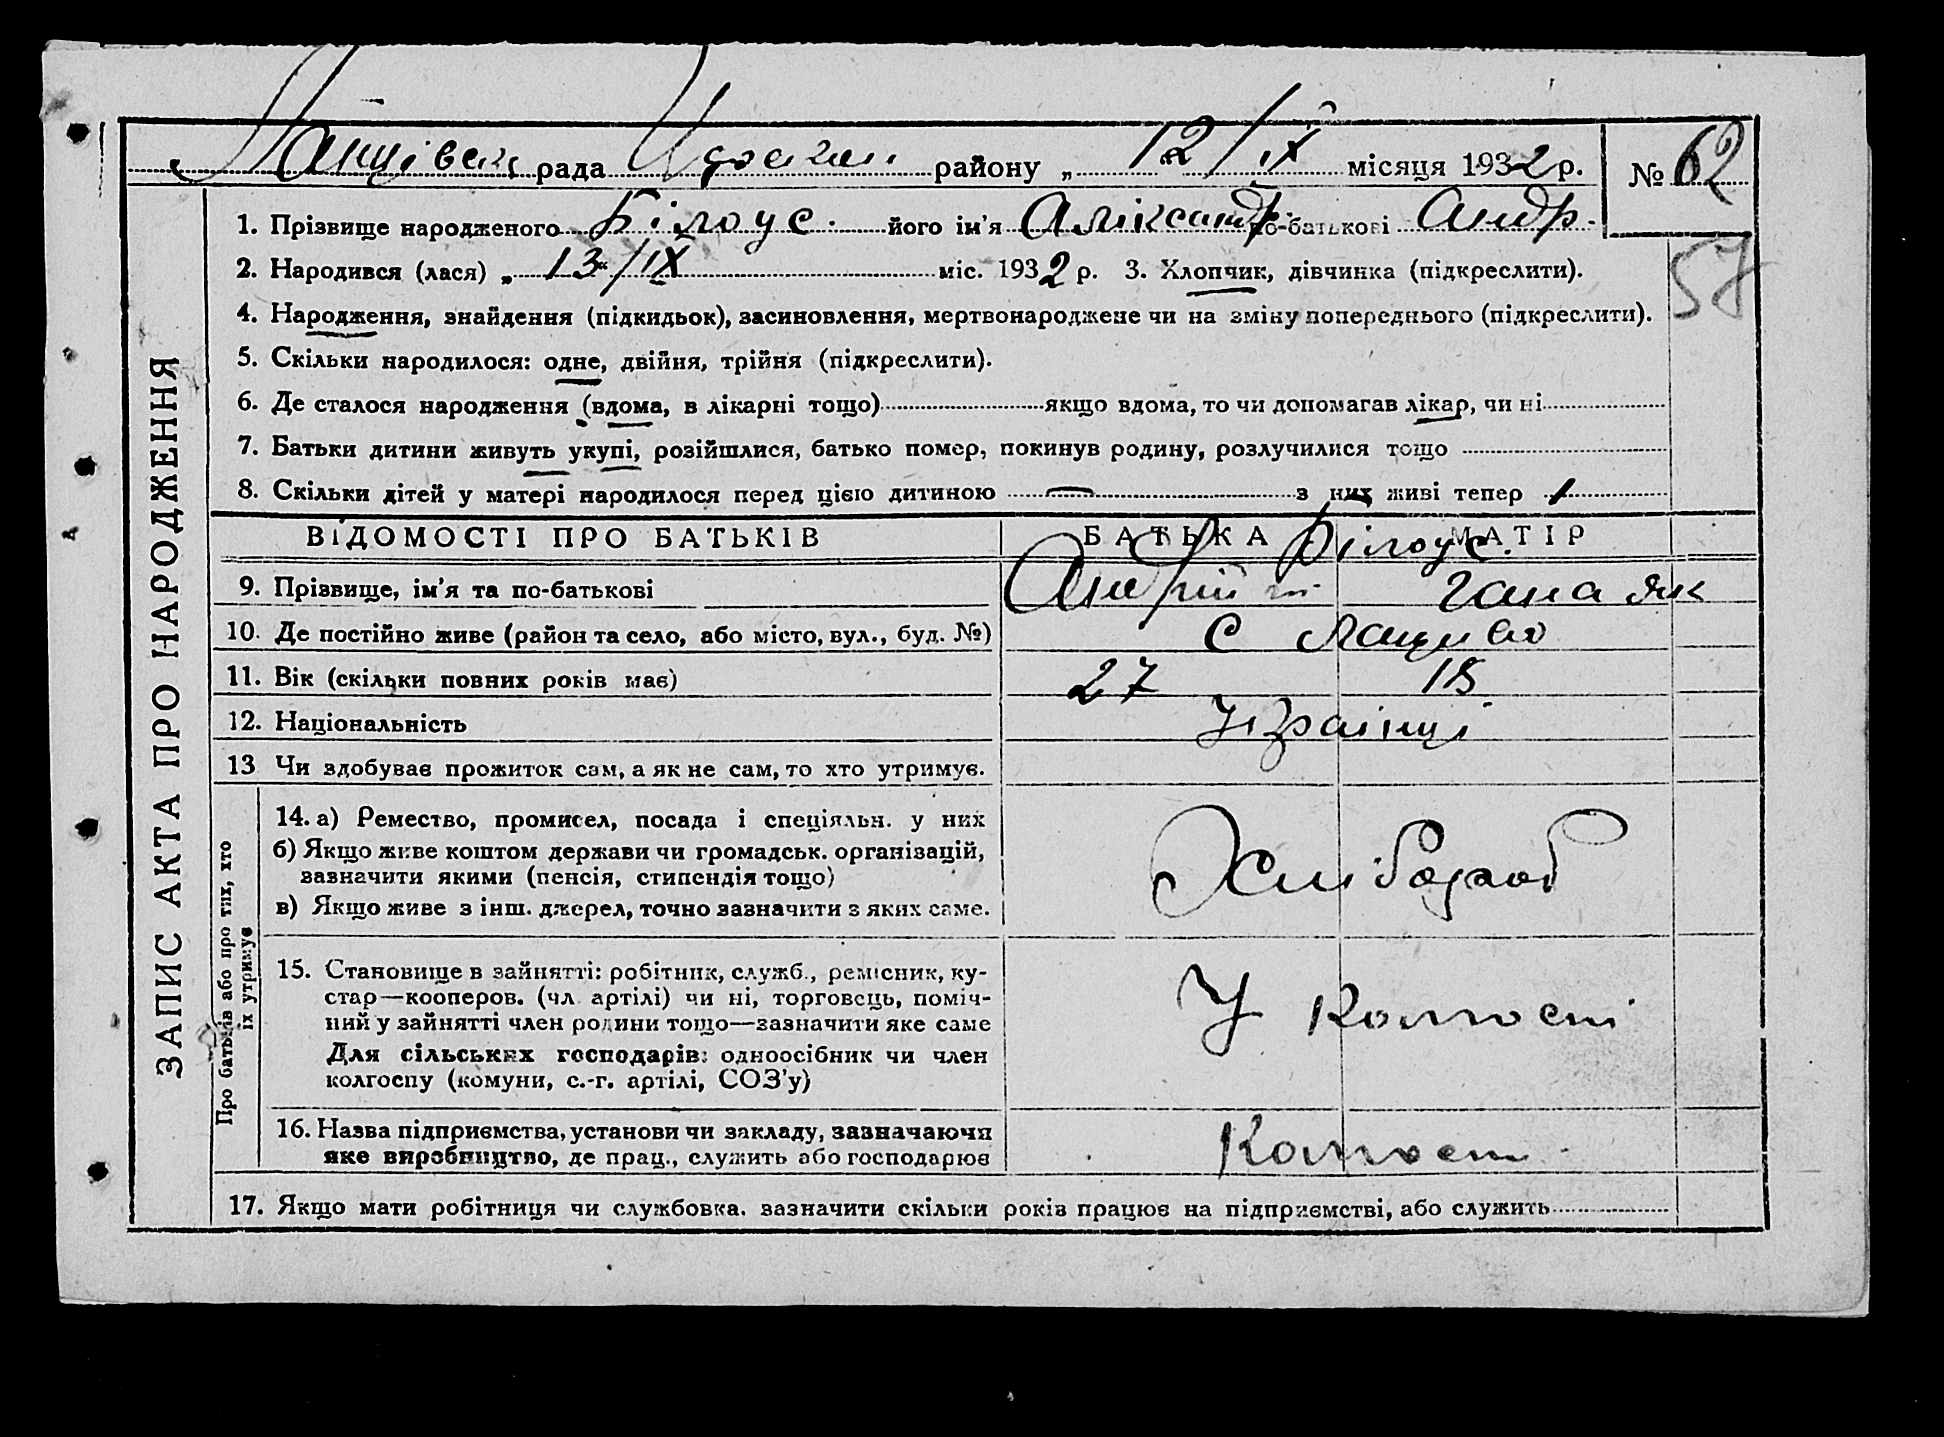 рада району „ 12 /IX місяця 1932 р. № 62
1. Прізвище народженого Білоус. його ім'я Аліксандр. по-батькові Андр.
2. Народився (лася) „ 13 “ /IX міс. 1932 р. 3. Хлопчик, дівчинка (підкреслити).
57
4. Народження, знайдення (підкидьок), засиновлення, мертвонароджене чи на зміну попереднього (підкреслити).
5. Скільки народилося: одне, двійня, трійня (підкреслити).
6. Де сталося народження (вдома, в лікарні тощо) якщо вдома, то чи допомагав лікар, чи ні
7. Батьки дитини живуть укупі, розійшлися, батько помер, покинув родину, розлучилися тощо
8. Скільки дітей у матері народилося перед цією дитиною — з них живі тепер 1
ЗАПИС АКТА ПРО НАРОДЖЕННЯ
ВІДОМОСТІ ПРО БАТЬКІВ БАТЬКА МАТІР
Білоус.
9. Прізвище, ім'я та по-батькові Андрій Гана Як
10. Де постійно живе (район та село, або місто, вул., буд. №) С
11. Вік (скільки повних років має) 27 18
12. Національність Українці
13 Чи здобуває прожиток сам, а як не сам, то хто утримує.
Про батьків або про тих, хто
їх утримує
14. а) Ремество, промисел, посада і спеціяльн. у них
б) Якщо живе коштом держави чи громадськ. організацій,
зазначити якими (пенсія, стипендія тощо)
в) Якщо живе з інш. джерел, точно зазначити з яких саме.
Хлібороб
15. Становище в зайнятті: робітник, служб., ремісник, ку-
стар—кооперов. (чл. артілі) чи ні, торговець, поміч-
ний у зайнятті член родини тощо—зазначити яке саме
Для сільських господарів: одноосібник чи член
колгоспу (комуни, с.-г. артілі, СОЗ'у)
У
16. Назва підприємства, установи чи закладу, зазначаючи
яке виробництво, де прац., служить або господарює
17. Якщо мати робітниця чи службовка, зазначити скільки років працює на підприємстві, або служить